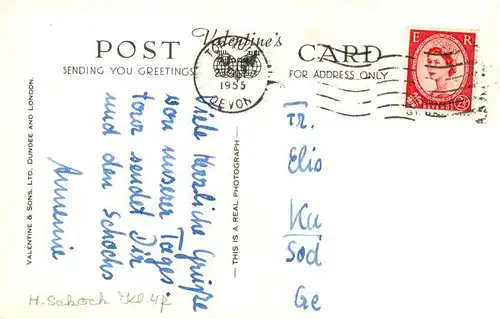 Valentine's
POST CARD
SENDING YOU GREETINGS
FOR ADDRESS ONLY
1955
DEVON
E R
VALENTINE & SONS, LTD., DUNDEE AND LONDON.
Viele Herzliche Grüße
von unserer Tages-
tour sendet Dir
und den Schochs
Annemie
— THIS IS A REAL PHOTOGRAPH —
Fr.
Elis
Ku
Sod
Ge
H. Schoch Kl. 4f